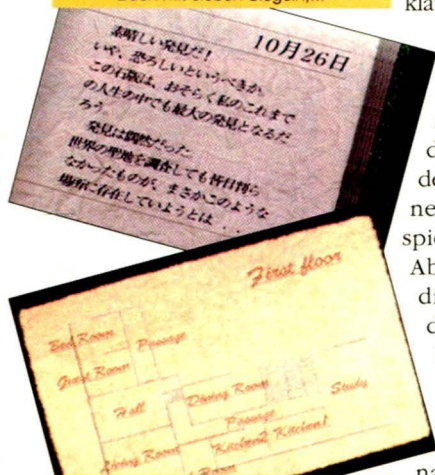 Buch mit sieben Siegeln,...
kla
10月26日
素晴しい発見だ!
いや、恐ろしいというべきか。
この石版は、おそらく私のこれまで
の人生の中でも最大の発見となるだ
ろう。
発見は偶然だった。
世界の聖地を調査しても皆目判ら
なかったものが、まさかこのような
場所に存在していようとは...
d
de
ne
spie
Ab
di
d
na
First floor
Bed Room
Passage
Guest Room
Hall
Dining Room
Study
Passage
Living Room
Kitchen2 Kitchen1
Room